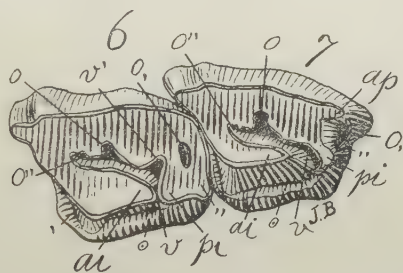 6 7
o v' o, o'' o ap
o'' o, '' pi
' ai ⊙ v pi '' ai ⊙ v J.B